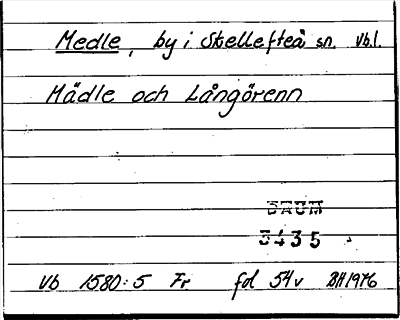 Medle, by i Skellefteå sn. Vb.l.
Mädle och Långörenn
5435
Vb 1580:5 Fr fol 54v BH1976